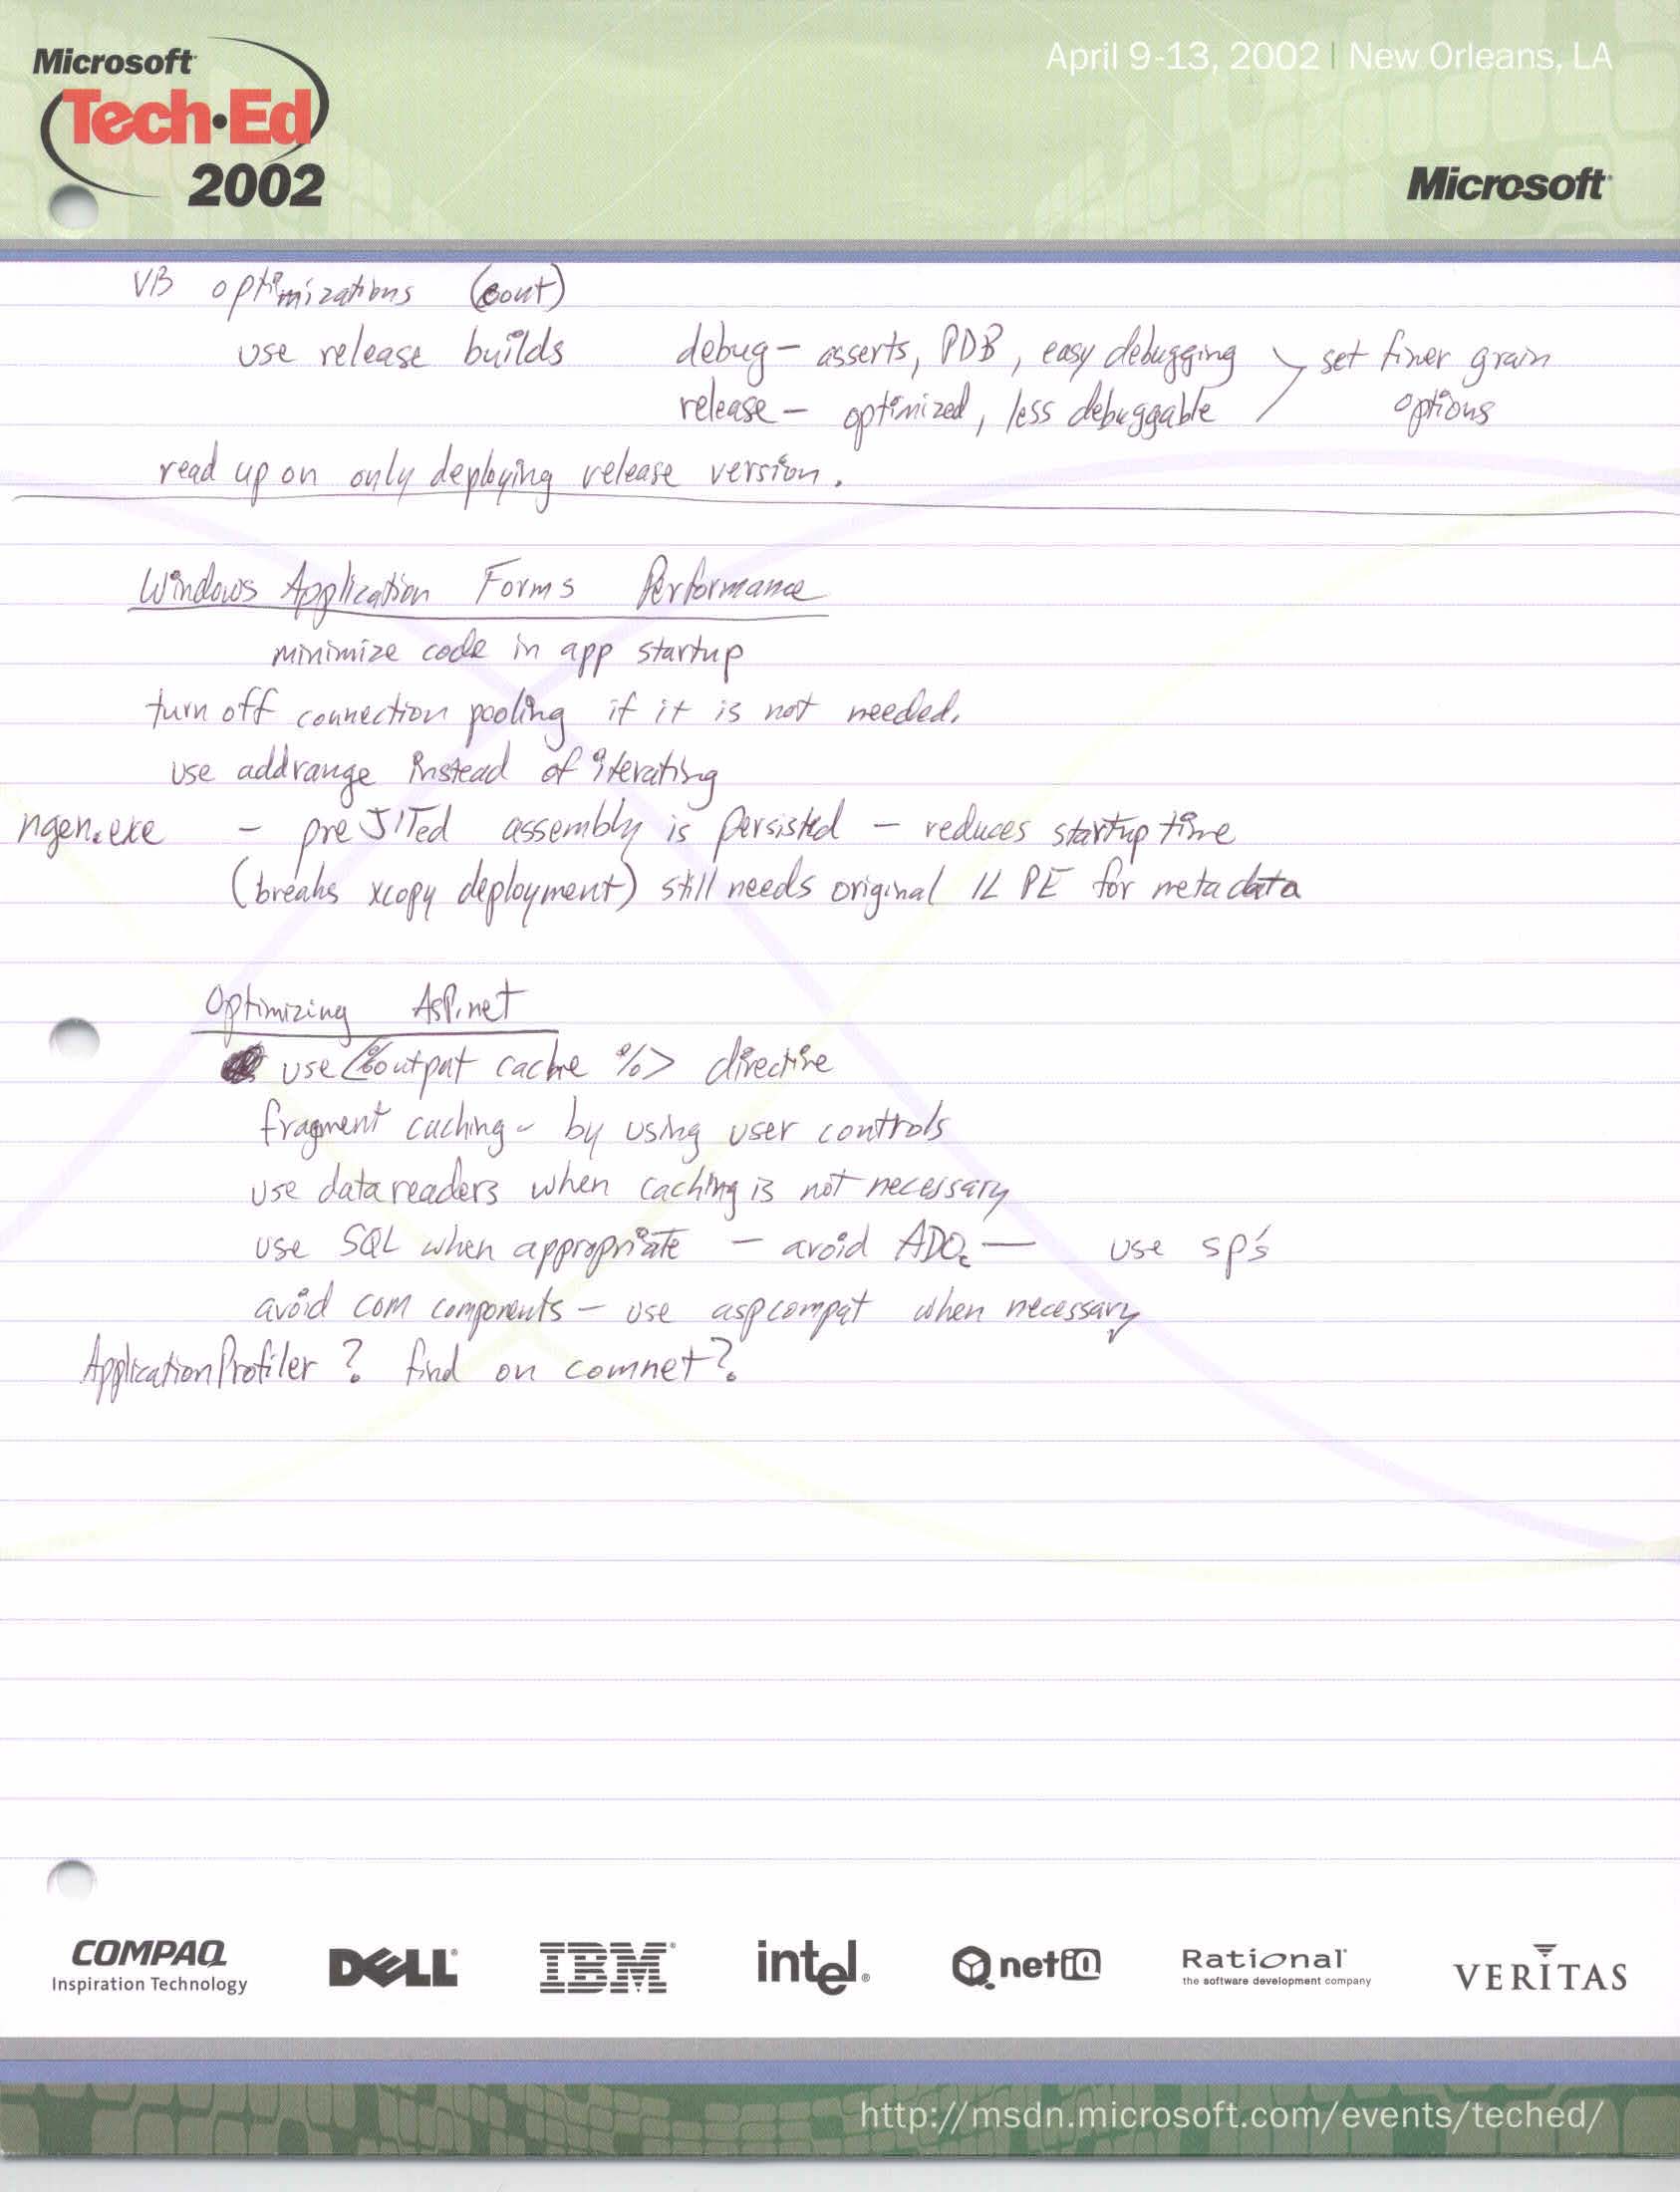 Microsoft
Tech·Ed
2002
April 9-13, 2002 | New Orleans, LA
Microsoft
VB optimizations (cont)
use release builds debug - asserts, PDB, easy debugging set finer grain
release - optimized, less debuggable options
read up on only deploying release version.
Windows Application Forms Performance
minimize code in app startup
turn off connection pooling if it is not needed.
use addrange instead of iterating
ngen.exe - pre JITed assembly is persisted - reduces startup time
(breaks xcopy deployment) still needs original IL PE for metadata
Optimizing ASP.net
use <% output cache %> directive
fragment caching - by using user controls
use datareaders when caching is not necessary
use SQL when appropriate - avoid ADOc - use sp's
avoid com components - use aspcompat when necessary
ApplicationProfiler? find on comnet?
COMPAQ
Inspiration Technology
DELL
IBM
intel
netiQ
Rational
the software development company
VERITAS
http://msdn.microsoft.com/events/teched/